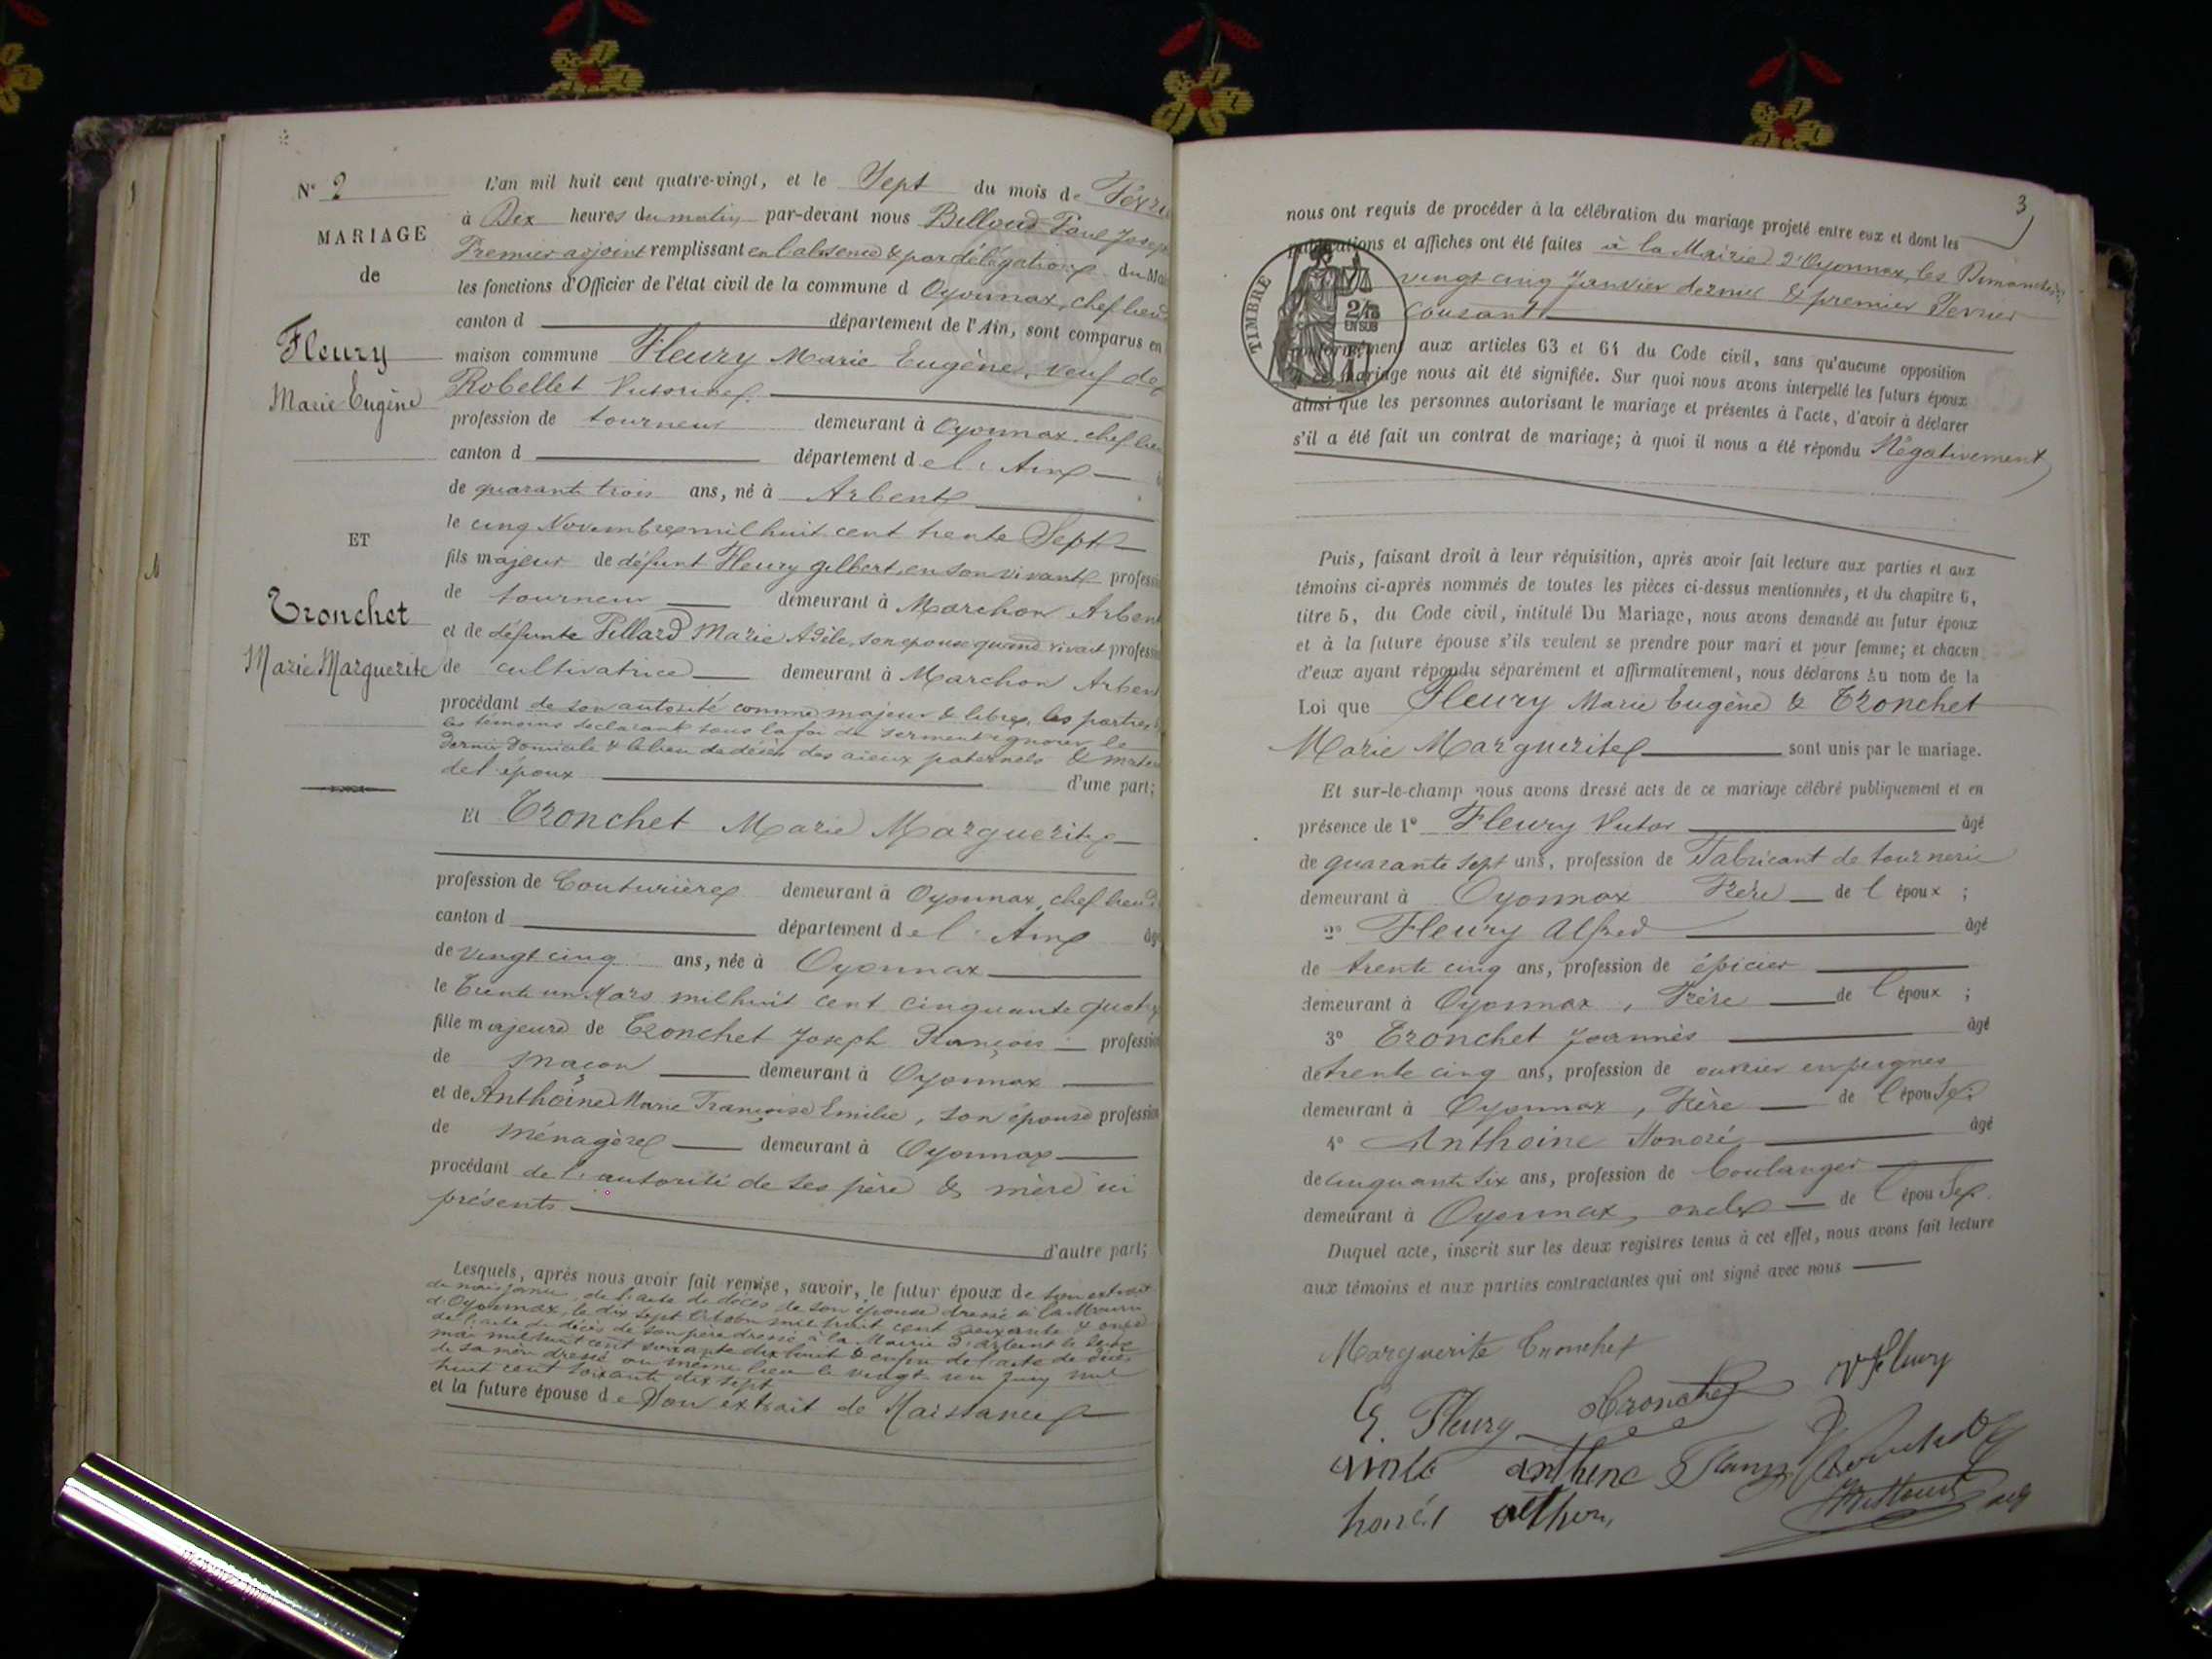 N° 2
MARIAGE
de
Fleury
Marie Eugène
ET
Tronchet
Marie Marguerite
L'an mil huit cent quatre-vingt, et le Sept du mois de Févri
à Dix heures du matin par-devant nous Billoud Paul Joseph
Premier adjoint remplissant en l'absence & par délégation du Mai
les fonctions d'Officier de l'état civil de la commune d Oyonnax, chef lieu
canton d département de l'Ain, sont comparus en
maison commune Fleury Marie Eugène, veuf de
Robellet Victorine
profession de tourneur demeurant à Oyonnax, chef lieu
canton d département de l'Ain
de quarante trois ans, né à Arbent
le cinq Novembre mil huit cent trente Sept
fils majeur de défunt Fleury Gilbert, en son vivant professi
de tourneur demeurant à Marchon Arben
et de défunte Pillard Marie Adèle, son épouse quand vivait professi
de cultivatrice demeurant à Marchon Arben
procédant de son autorité comme majeur & libre, les parties &
les témoins déclarant sous la foi du serment ignorer le
dernier domicile & le lieu de décès des aïeux paternels & mater
de l'époux d'une part;
Et Tronchet Marie Marguerite
profession de Couturière demeurant à Oyonnax, chef lieu d
canton d département de l'Ain âgé
de vingt cinq ans, née à Oyonnax
le trente un Mars mil huit cent cinquante quatre
fille majeure de Tronchet Joseph François professio
de maçon demeurant à Oyonnax
et de Anthoine Marie Françoise Emilie, son épouse professio
de ménagère demeurant à Oyonnax
procédant de l'autorité de ses père & mère ici
présents
d'autre part;
Lesquels, après nous avoir fait remise, savoir, le futur époux de son extrait
de naissance, de l'acte de décès de son épouse dressé à la Mairie
d'Oyonnax, le dix sept Octobre mil huit cent soixante & onze
de l'acte de décès de son père dressé à la Mairie d'Arbent le
mai mil huit cent soixante dix huit & enfin de l'acte de décès
de sa mère dressé au même lieu le vingt un Juin mil
huit cent soixante dix sept
et la future épouse de Son extrait de Naissance
3
nous ont requis de procéder à la célébration du mariage projeté entre eux et dont les
publications et affiches ont été faites à la Mairie d'Oyonnax, les Dimanches
vingt cinq Janvier dernier & premier Fevrier
courant
TIMBRE
2/10
EN SUS
conformément aux articles 63 et 64 du Code civil, sans qu'aucune opposition
à ce mariage nous ait été signifiée. Sur quoi nous avons interpellé les futurs époux
ainsi que les personnes autorisant le mariage et présentes à l'acte, d'avoir à déclarer
s'il a été fait un contrat de mariage; à quoi il nous a été répondu Négativement
Puis, faisant droit à leur réquisition, après avoir fait lecture aux parties et aux
témoins ci-après nommés de toutes les pièces ci-dessus mentionnées, et du chapitre 6,
titre 5, du Code civil, intitulé Du Mariage, nous avons demandé au futur époux
et à la future épouse s'ils veulent se prendre pour mari et pour femme; et chacun
d'eux ayant répondu séparément et affirmativement, nous déclarons au nom de la
Loi que Fleury Marie Eugène & Tronchet
Marie Marguerite sont unis par le mariage.
Et sur-le-champ nous avons dressé acte de ce mariage célébré publiquement et en
présence de 1° Fleury Victor âgé
de quarante sept ans, profession de Fabricant de tournerie
demeurant à Oyonnax Frère de l époux ;
2° Fleury Alfred âgé
de trente cinq ans, profession de épicier
demeurant à Oyonnax, Frère de l époux ;
3° Tronchet Joannès âgé
de trente cinq ans, profession de ouvrier en peignes
demeurant à Oyonnax, Frère de l épouse.
4° Anthoine Honoré âgé
de cinquante six ans, profession de boulanger
demeurant à Oyonnax, oncle de l épouse.
Duquel acte, inscrit sur les deux registres tenus à cet effet, nous avons fait lecture
aux témoins et aux parties contractantes qui ont signé avec nous
Marguerite Tronchet
E. Fleury Tronchet V Fleury
anthine
honoré